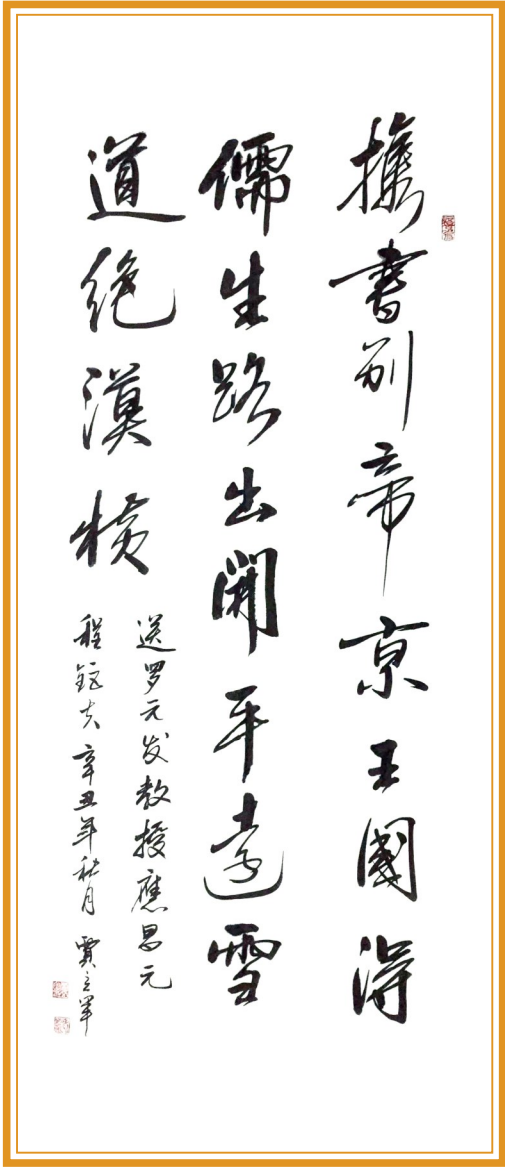 攜書別帝京王國得
儒生路出開平遠雪
道絶漠横
送罗元发教授應昌元
程鉅夫 辛丑年秋月 賈立軍